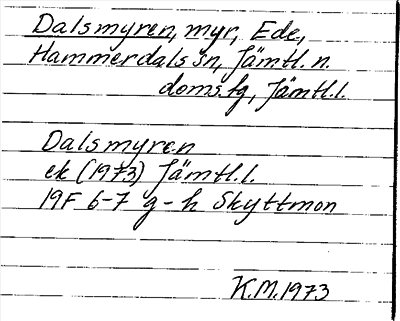 Dalsmyren, myr, Ede,
Hammerdals sn, Jämtl. n.
doms.fg, Jämtl.l.
Dalsmyren
ek (1973) Jämtl.l.
19F 6-7 g-h Skyttmon
K.M. 1973